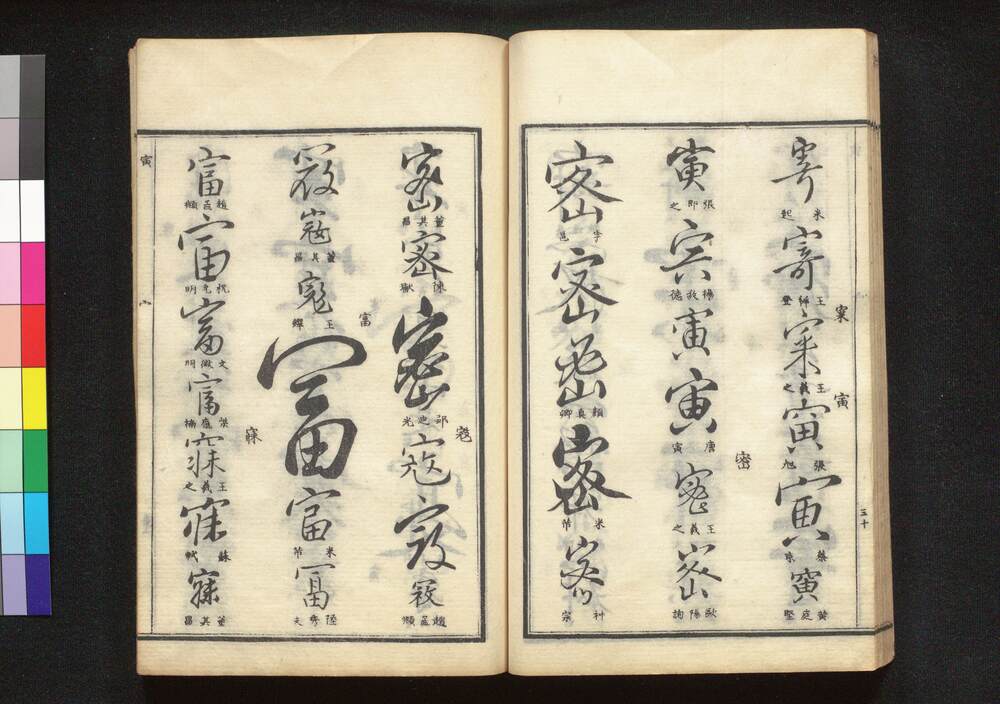 寄
米起
寄
王師登
寀
寀
王羲之
寅
寅
張旭
寅
蔡
寅
黄庭堅
三十
寅
張即之
寅
楊
徳
寅
寅
唐寅
密
密
王羲之
密
歐陽詢
密
李邕
密
密
顔真卿
密
米芾
密
宗
密
董其昌
密
陳獻
密
邵
光
寇
寇
寇
寇
趙孟頫
寇
寇
董其昌
寇
王鐸
富
富
富
米芾
富
陸
夫
寅
富
趙孟頫
富
祝允明
富
文徴明
富
楠
寐
寐
王羲之
寐
蘇軾
寐
董其昌